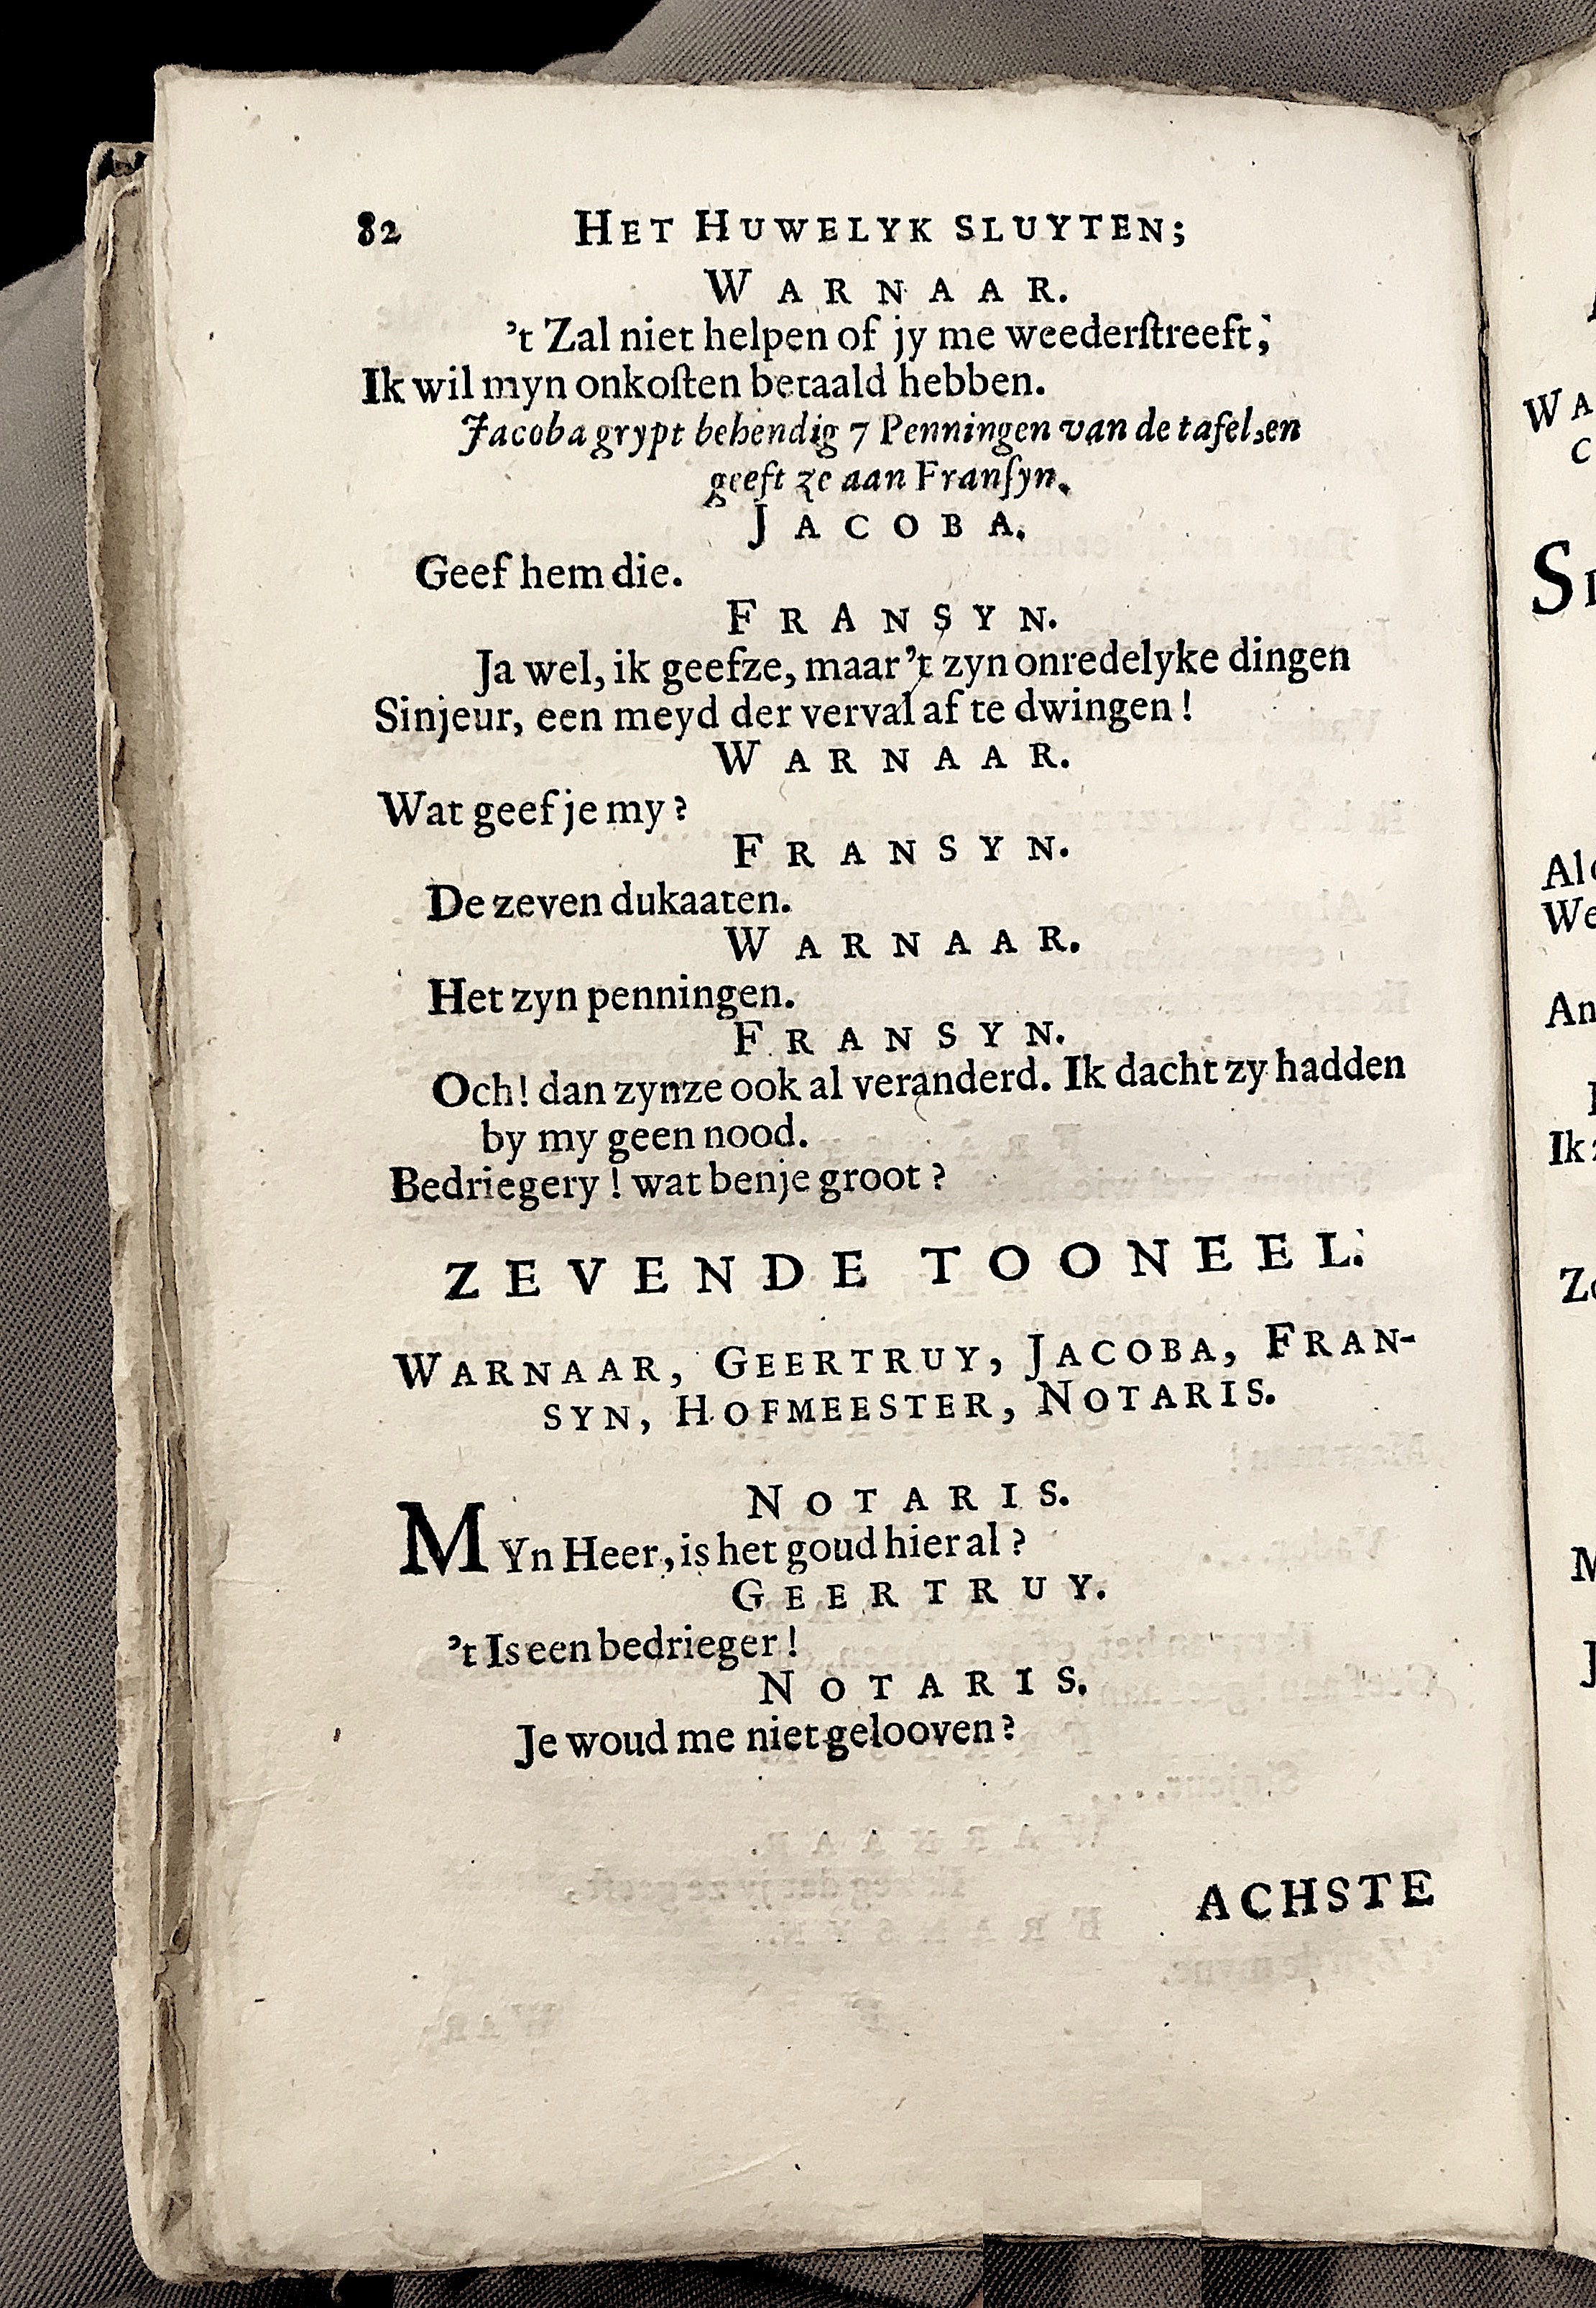 82 HET HUWELYK SLUYTEN;
WARNAAR.
't Zal niet helpen of jy me weederſtreeft;
Ik wil myn onkoſten betaald hebben.
Jacoba grypt behendig 7 Penningen van de tafel, en
geeft ze aan Franſyn.
JACOBA.
Geef hem die.
FRANSYN.
Ja wel, ik geefze, maar 't zyn onredelyke dingen
Sinjeur, een meyd der verval af te dwingen!
WARNAAR.
Wat geef je my?
FRANSYN.
De zeven dukaaten.
WARNAAR.
Het zyn penningen.
FRANSYN.
Och! dan zynze ook al veranderd. Ik dacht zy hadden
by my geen nood.
Bedriegery! wat benje groot?
ZEVENDE TOONEEL.
WARNAAR, GEERTRUY, JACOBA, FRAN-
SYN, HOFMEESTER, NOTARIS.
NOTARIS.
MYn Heer, is het goud hier al?
GEERTRUY.
't Is een bedrieger!
NOTARIS.
Je woud me niet gelooven?
ACHSTE